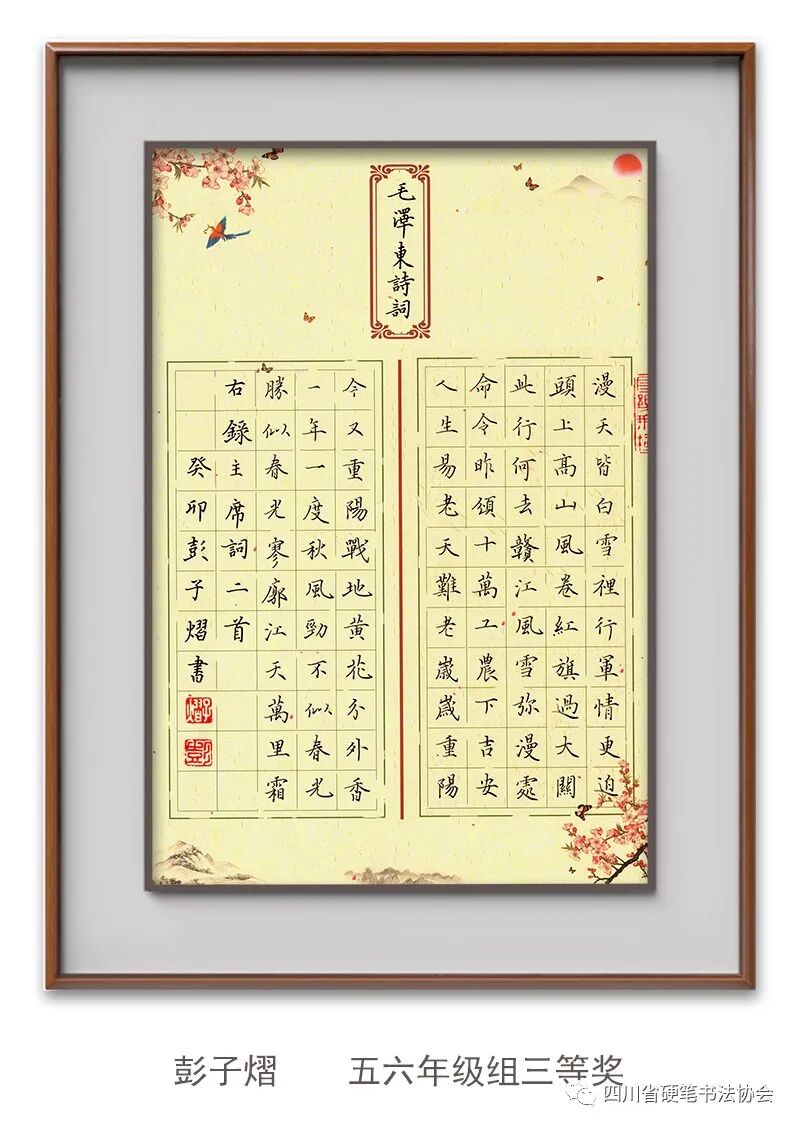 毛澤東詩詞
漫天皆白雪裡行軍情更迫
頭上高山風卷紅旗過大關
此行何去贛江風雪弥漫處
命令昨頒十萬工農下吉安
人生易老天難老歲歲重陽
今又重陽戰地黃花分外香
一年一度秋風勁不似春光
勝似春光寥廓江天萬里霜
右錄主席詞二首
癸卯彭子熠書
彭子熠 五六年级组三等奖
四川省硬笔书法协会